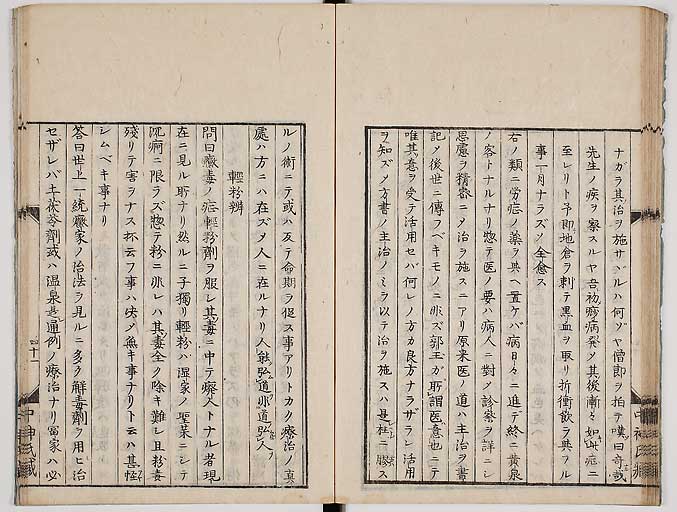 ナガラ其治ヲ施サヾルハ何ゾヤ僧即ヲ拍テ嘆曰奇哉
先生ノ疾ヲ察スルヤ吾初癈病発メ其後漸々如此症ニ
至レリト予即地倉ヲ刺テ黒血ヲ取リ折衝飲ヲ與フル
事一月ナラズメ全愈ス
右ノ類ニ労症ノ薬ヲ與ヘ置ケバ病日々ニ進デ終ニ黄泉
ノ客トナルナリ惣テ医ノ要ハ病人ニ對メ診察ヲ詳ニシ
思慮ヲ精密ニメ治ヲ施スニアリ原来医ノ道ハ主治ヲ書
記メ後世ニ傳フベキモノニ非ズ郭玉ガ所謂医意也ニテ
唯其意ヲ受テ活用セバ何レノ方カ良方ナラザラン活用
ヲ知ズメ方書ノ主治ノミヲ以テ治ヲ施スハ是柱ニ膠ス
ルノ術ニテ或ハ反テ命期ヲ促ス事アリトカク療治ノ真
處ハ方ニハ在ズメ人ニ在ルナリ人能弘道非道弘人
輕粉辨
問曰癩毒ノ症輕粉剤ヲ服シ其毒ニ中テ癈人トナル者現
在ニ見ル所ナリ然ルニ子獨リ輕粉ハ湿家ノ聖薬ニシテ
沉痾ニ限ラズ惣テ粉ニ非レハ其毒全ク除キ難シ且粉毒
残リテ害ヲナス抔云フ事ハ决メ無キ事ナリト云ハ甚怪
シムベキ事ナリ
答曰世上一統癩家ノ治法ヲ見ルニ多ク解毒劑ヲ用ヒ治
セザレバ土茯苓劑或ハ温泉是通例ノ療治ナリ冨家ハ必
四十一
中神氏藏
中神氏藏